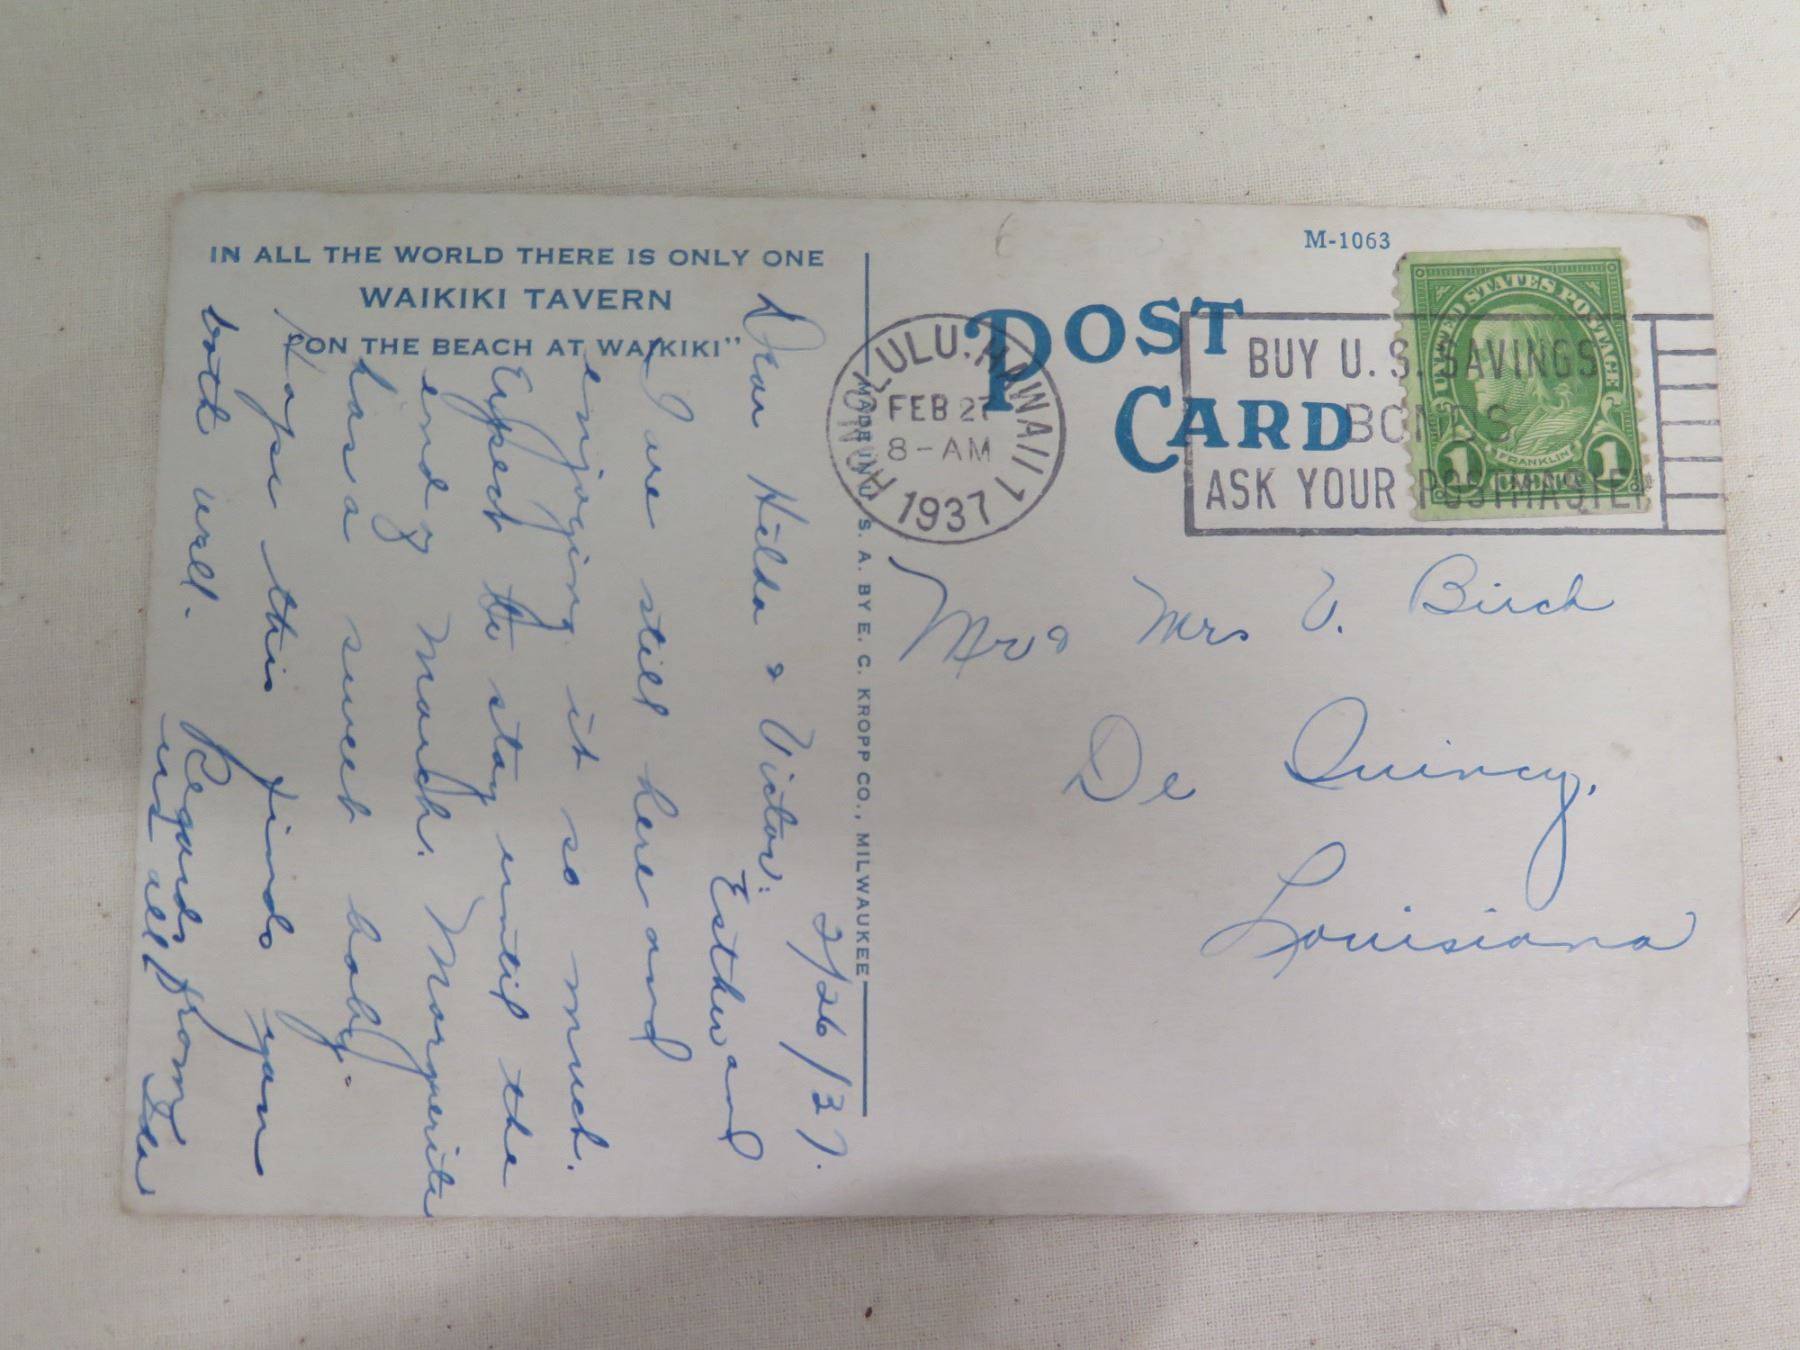 IN ALL THE WORLD THERE IS ONLY ONE
WAIKIKI TAVERN
"ON THE BEACH AT WAIKIKI"
M-1063
POST
CARD
HONOLULU, HAWAII
FEB 27
8-AM
1937
1
BUY U. S. SAVINGS
BONDS
ASK YOUR POSTMASTER
UNITED STATES POSTAGE
FRANKLIN
1 CENT 1
MADE IN U. S. A. BY E. C. KROPP CO., MILWAUKEE
2/26/37.
Dear Hilda & Victor:
Esther and
I are still here and
enjoying it so much.
Expect to stay until the
end of March. Marguerite
has a sweet baby.
Hope this finds you
both well.
Regards from
us all Ida
Mr & Mrs V. Birch
De Quincy,
Louisiana